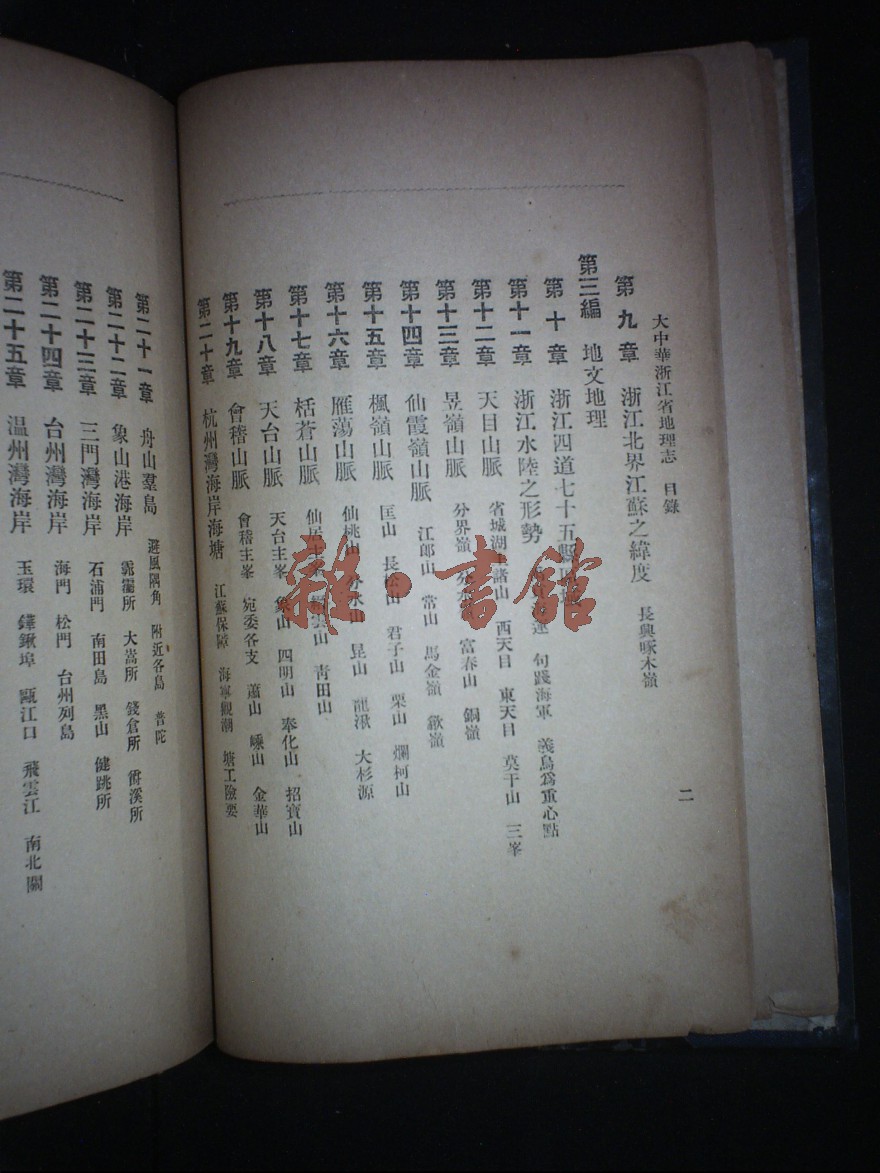 大中華浙江省地理志 目錄
二
第九章 浙江北界江蘇之緯度 長興啄木嶺
第三編 地文地理
第十章 浙江四道七十五縣
第十一章 浙江水陸之形勢 句踐海軍 義烏爲重心點
第十二章 天目山脈 省城湖 諸山 西天目 東天目 莫干山 三峯
第十三章 昱嶺山脈 分界嶺 富春山 銅嶺
第十四章 仙霞嶺山脈 江郎山 常山 馬金嶺 歙嶺
第十五章 楓嶺山脈 匡山 長松山 君子山 栗山 爛柯山
第十六章 雁蕩山脈 仙桃山 分水山 昆山 龍湫 大杉源
第十七章 括蒼山脈 仙居主峯 山 青田山
第十八章 天台山脈 天台主峯 象山 四明山 奉化山 招寶山
第十九章 會稽山脈 會稽主峯 宛委各支 蕭山 嵊山 金華山
第二十章 杭州灣海岸海塘 江蘇保障 海寧觀潮 塘工險要
第二十一章 舟山羣島 避風隅角 附近各島 普陀
第二十二章 象山港海岸 霩𩆩所 大嵩所 錢倉所 爵溪所
第二十三章 三門灣海岸 石浦門 南田島 黑山 健跳所
第二十四章 台州灣海岸 海門 松門 台州列島
第二十五章 温州灣海岸 玉環 鏵鍬埠 甌江口 飛雲江 南北關
雜·書館